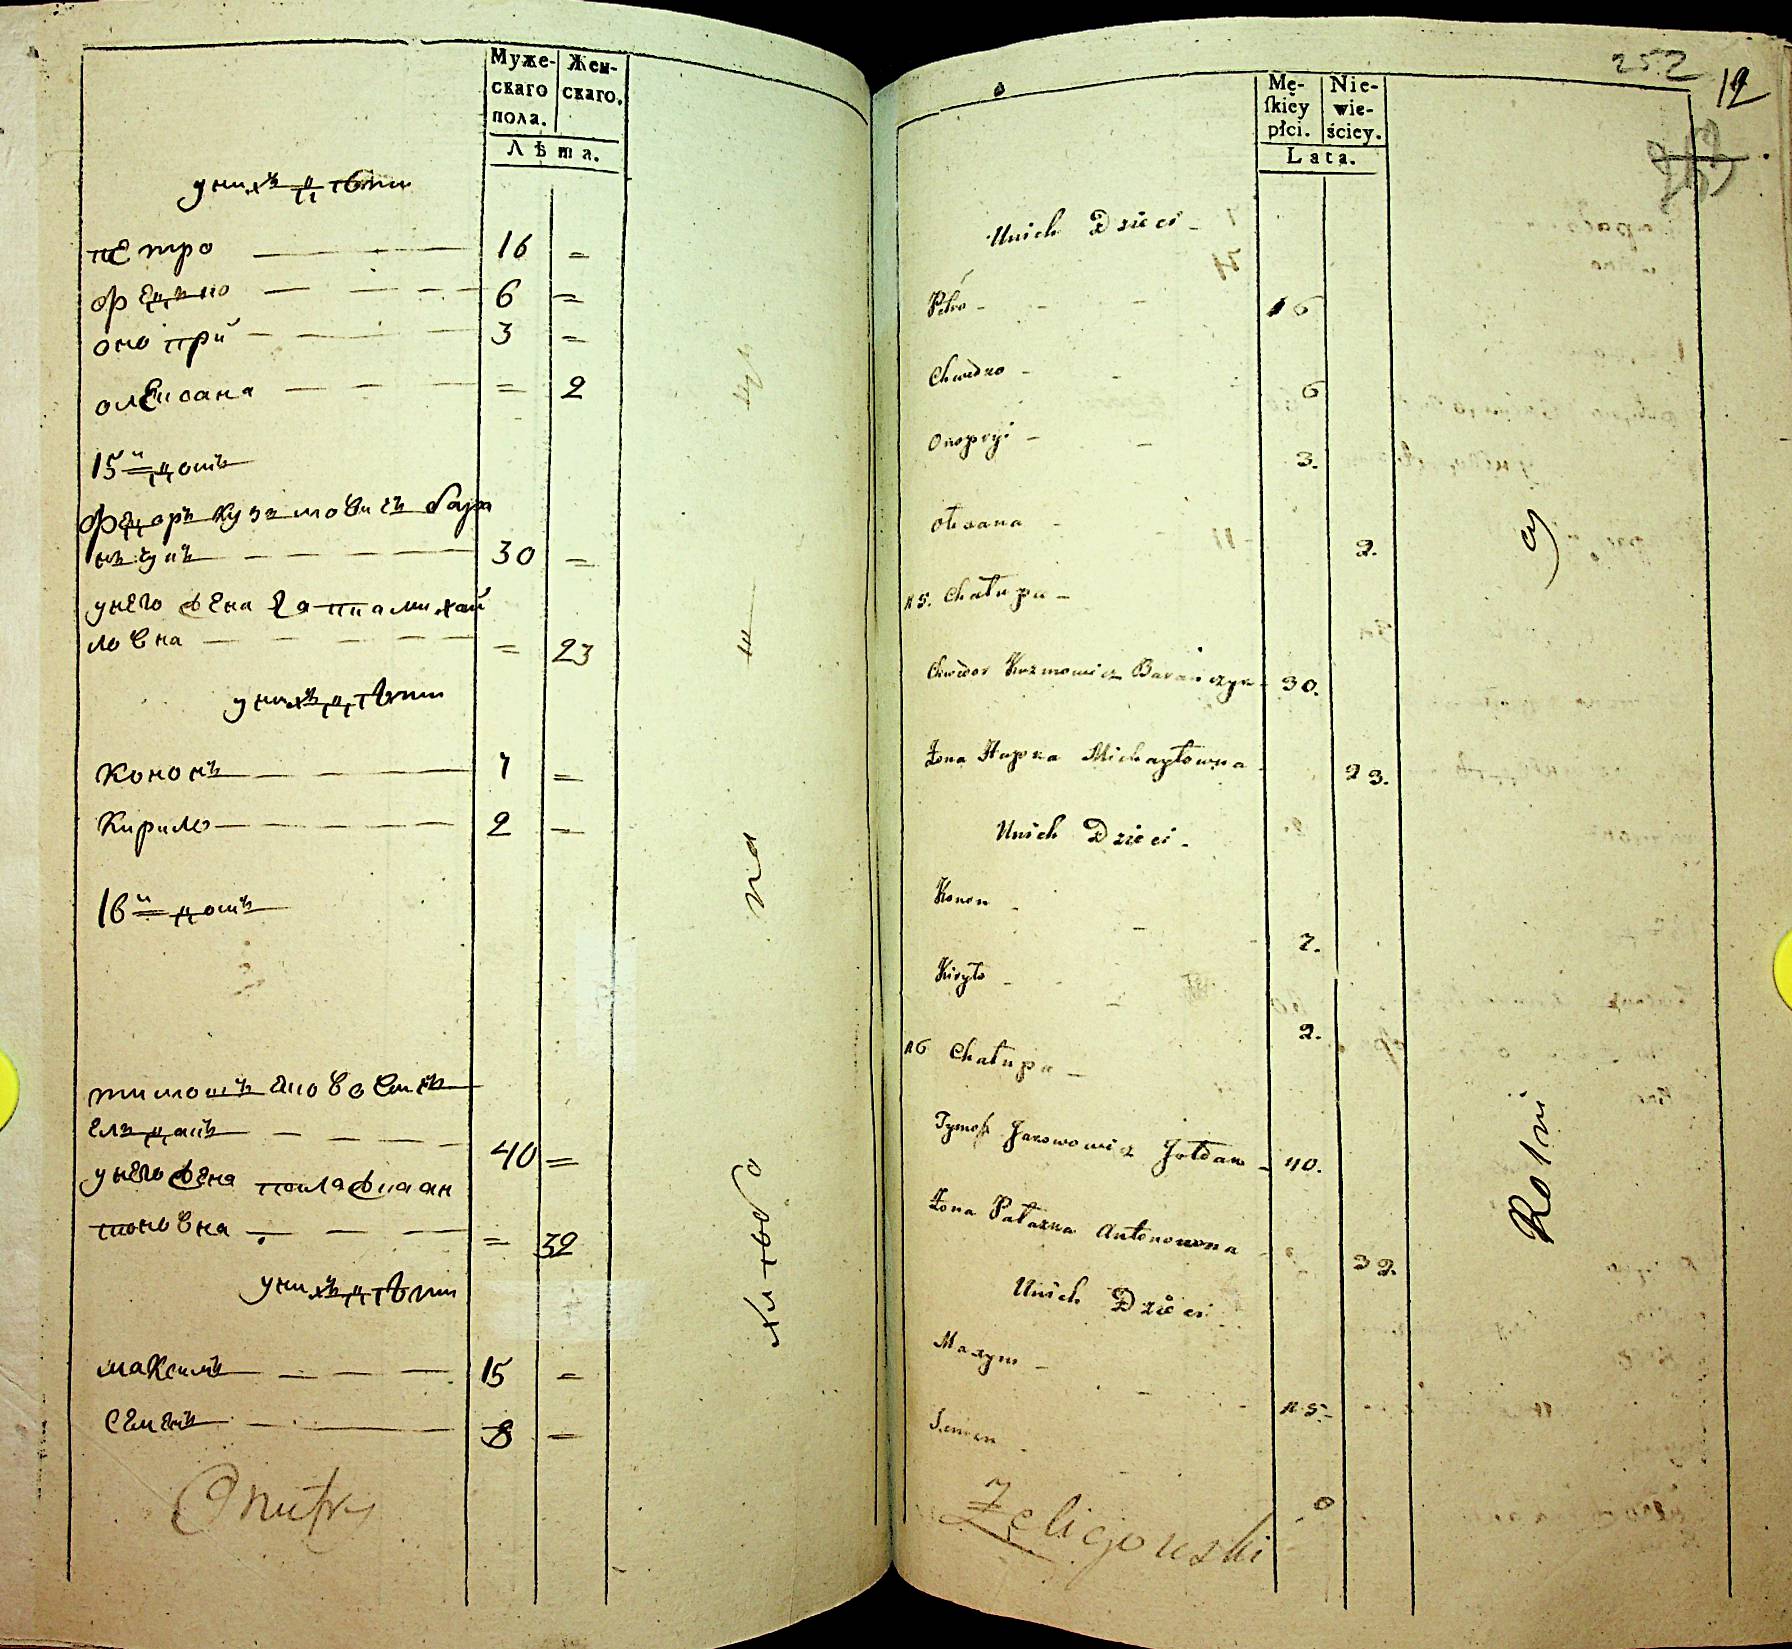 Муже-
скаго
пола.
Жен-
скаго.
Лѣта.
у нихъ дѣти
петро 16 =
федько 6 =
оноприй 3 =
олексана = 2
15й домъ
федоръ кузмовичъ баран
чукъ 30 =
у него жена гапка михай
ловна = 23
у нихъ дѣти
кононъ 7 =
кирило 2 =
16й домъ
тимошъ
40 =
у него жена палажка ан
тоновна = 32
у нихъ дѣти
максимъ 15 =
семенъ 8 =
на
хлѣбо
Onufry
252
12
Mę-
skiey
płci.
Nie-
wieściey.
Lata.
Unich Dzieci
Petro 16
Chwedko 6
Onopryi 3.
Olexana 2.
15. Chałupa
Chwedor Kuzmowicz Barańczyk 30.
Żona Hapka Michayłowna 23.
Unich Dzieci
Konon 7.
Kiryło 2.
16 Chałupa
Tymosz 40.
Żona Pałazka Antonowna 32.
Unich Dzieci
Maxym 15.
Semen
Żeligowski
cy
Rolni